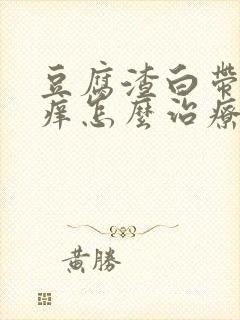 豆腐渣白帶
痒怎麼治療
黃勝